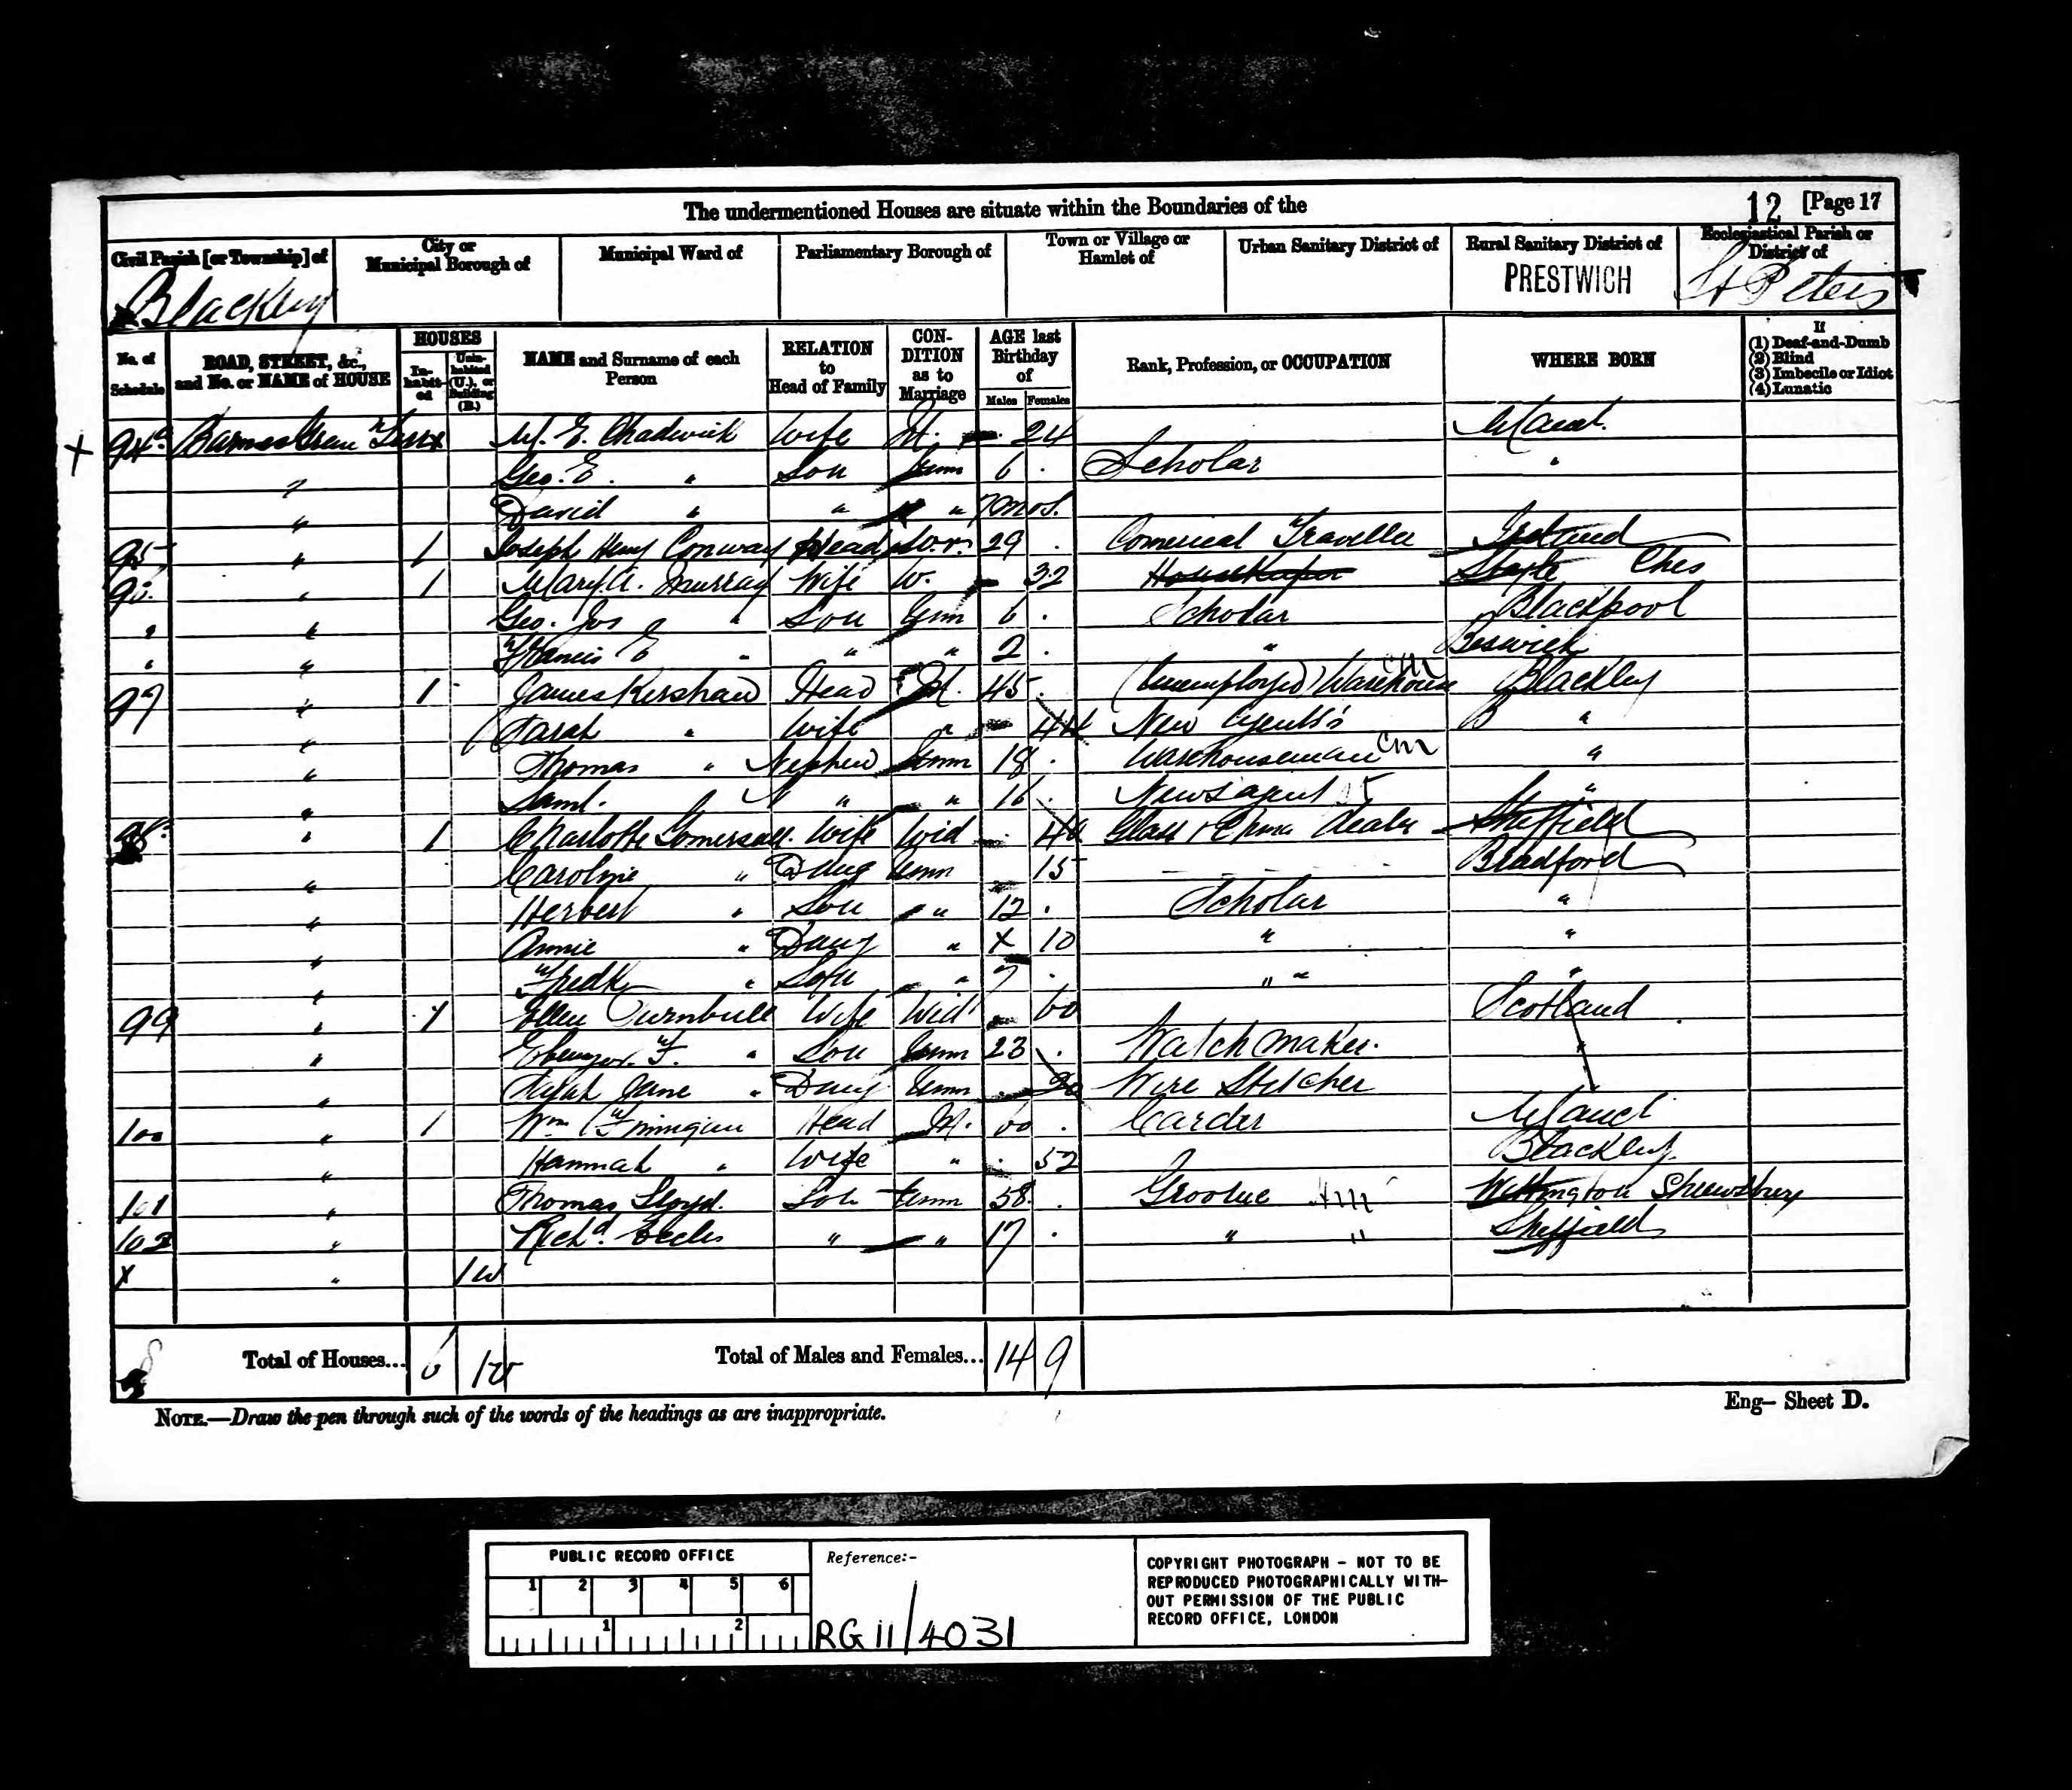 The undermentioned Houses are situate within the Boundaries of the
12 [Page 17
Civil Parish [or Township] of
City or Municipal Borough of
Municipal Ward of
Parliamentary Borough of
Town or Village or Hamlet of
Urban Sanitary District of
Rural Sanitary District of
Ecclesiastical Parish or District of
Blackley
PRESTWICH
St Peters
No. of Schedule
ROAD, STREET, &c., and No. or NAME of HOUSE
HOUSES
In-habit-ed
Unin-habited (U.), or Building (B.)
NAME and Surname of each Person
RELATION to Head of Family
CON-DITION as to Marriage
AGE last Birthday of
Males
Females
Rank, Profession, or OCCUPATION
WHERE BORN
If
(1) Deaf-and-Dumb
(2) Blind
(3) Imbecile or Idiot
(4) Lunatic
94a Barnes Green M. E. Chadwick Wife M. 24 Manch.
" Geo. E. " Son Unm 6 . Scholar "
" David " " " 7 mos.
95 " 1 Joseph Henry Conway Head 29 . Comercal Traveller Ireland
" 1 Mary A. Murray Wife W. 32 Housekeeper Ches
" " Geo. Jos " Son Unm 6 . Scholar Blackpool
" " Francis E " " " 2 . " Beswick
97 " 1 James Kershaw Head M. 45 . (Unemployed) Warehouse Blackley
" Sarah " Wife " 44 New Agents's "
" Thomas " Nephew Unm 18 . Warehouseman "
" Saml. " " " 16 Newsagent "
98 " 1 Charlotte Gomersall Wife Wid 40 Glass & China dealer Sheffield
" Caroline " Daug Unm 15 Bradford
" Herbert " Son " 12 . Scholar "
" Annie " Daug " x 10 " "
" Fredk " Son " 7 . " "
99 " 1 Ellen Turnbull Wife Wid 60 Scotland
" Ebenezer F. " Son Unm 23 . Watch maker. "
" Sarah Jane " Daug Unm 20 Wire Stitcher "
100 " 1 Wm Head M. 60 . Carder Manch
" Hannah " Wife " 52 Blackley
101 " Thomas Lloyd. Son Unm 38 . Shrewsbury
102 " Richd. Eccles " " 17 . " " Sheffield
X " 1
Total of Houses... 6 1
Total of Males and Females... 14 9
NOTE.—Draw the pen through such of the words of the headings as are inappropriate.
Eng– Sheet D.
PUBLIC RECORD OFFICE
1 2 3 4 5 6
1 2
Reference:-
RG 11/4031
COPYRIGHT PHOTOGRAPH – NOT TO BE
REPRODUCED PHOTOGRAPHICALLY WITH-
OUT PERMISSION OF THE PUBLIC
RECORD OFFICE, LONDON